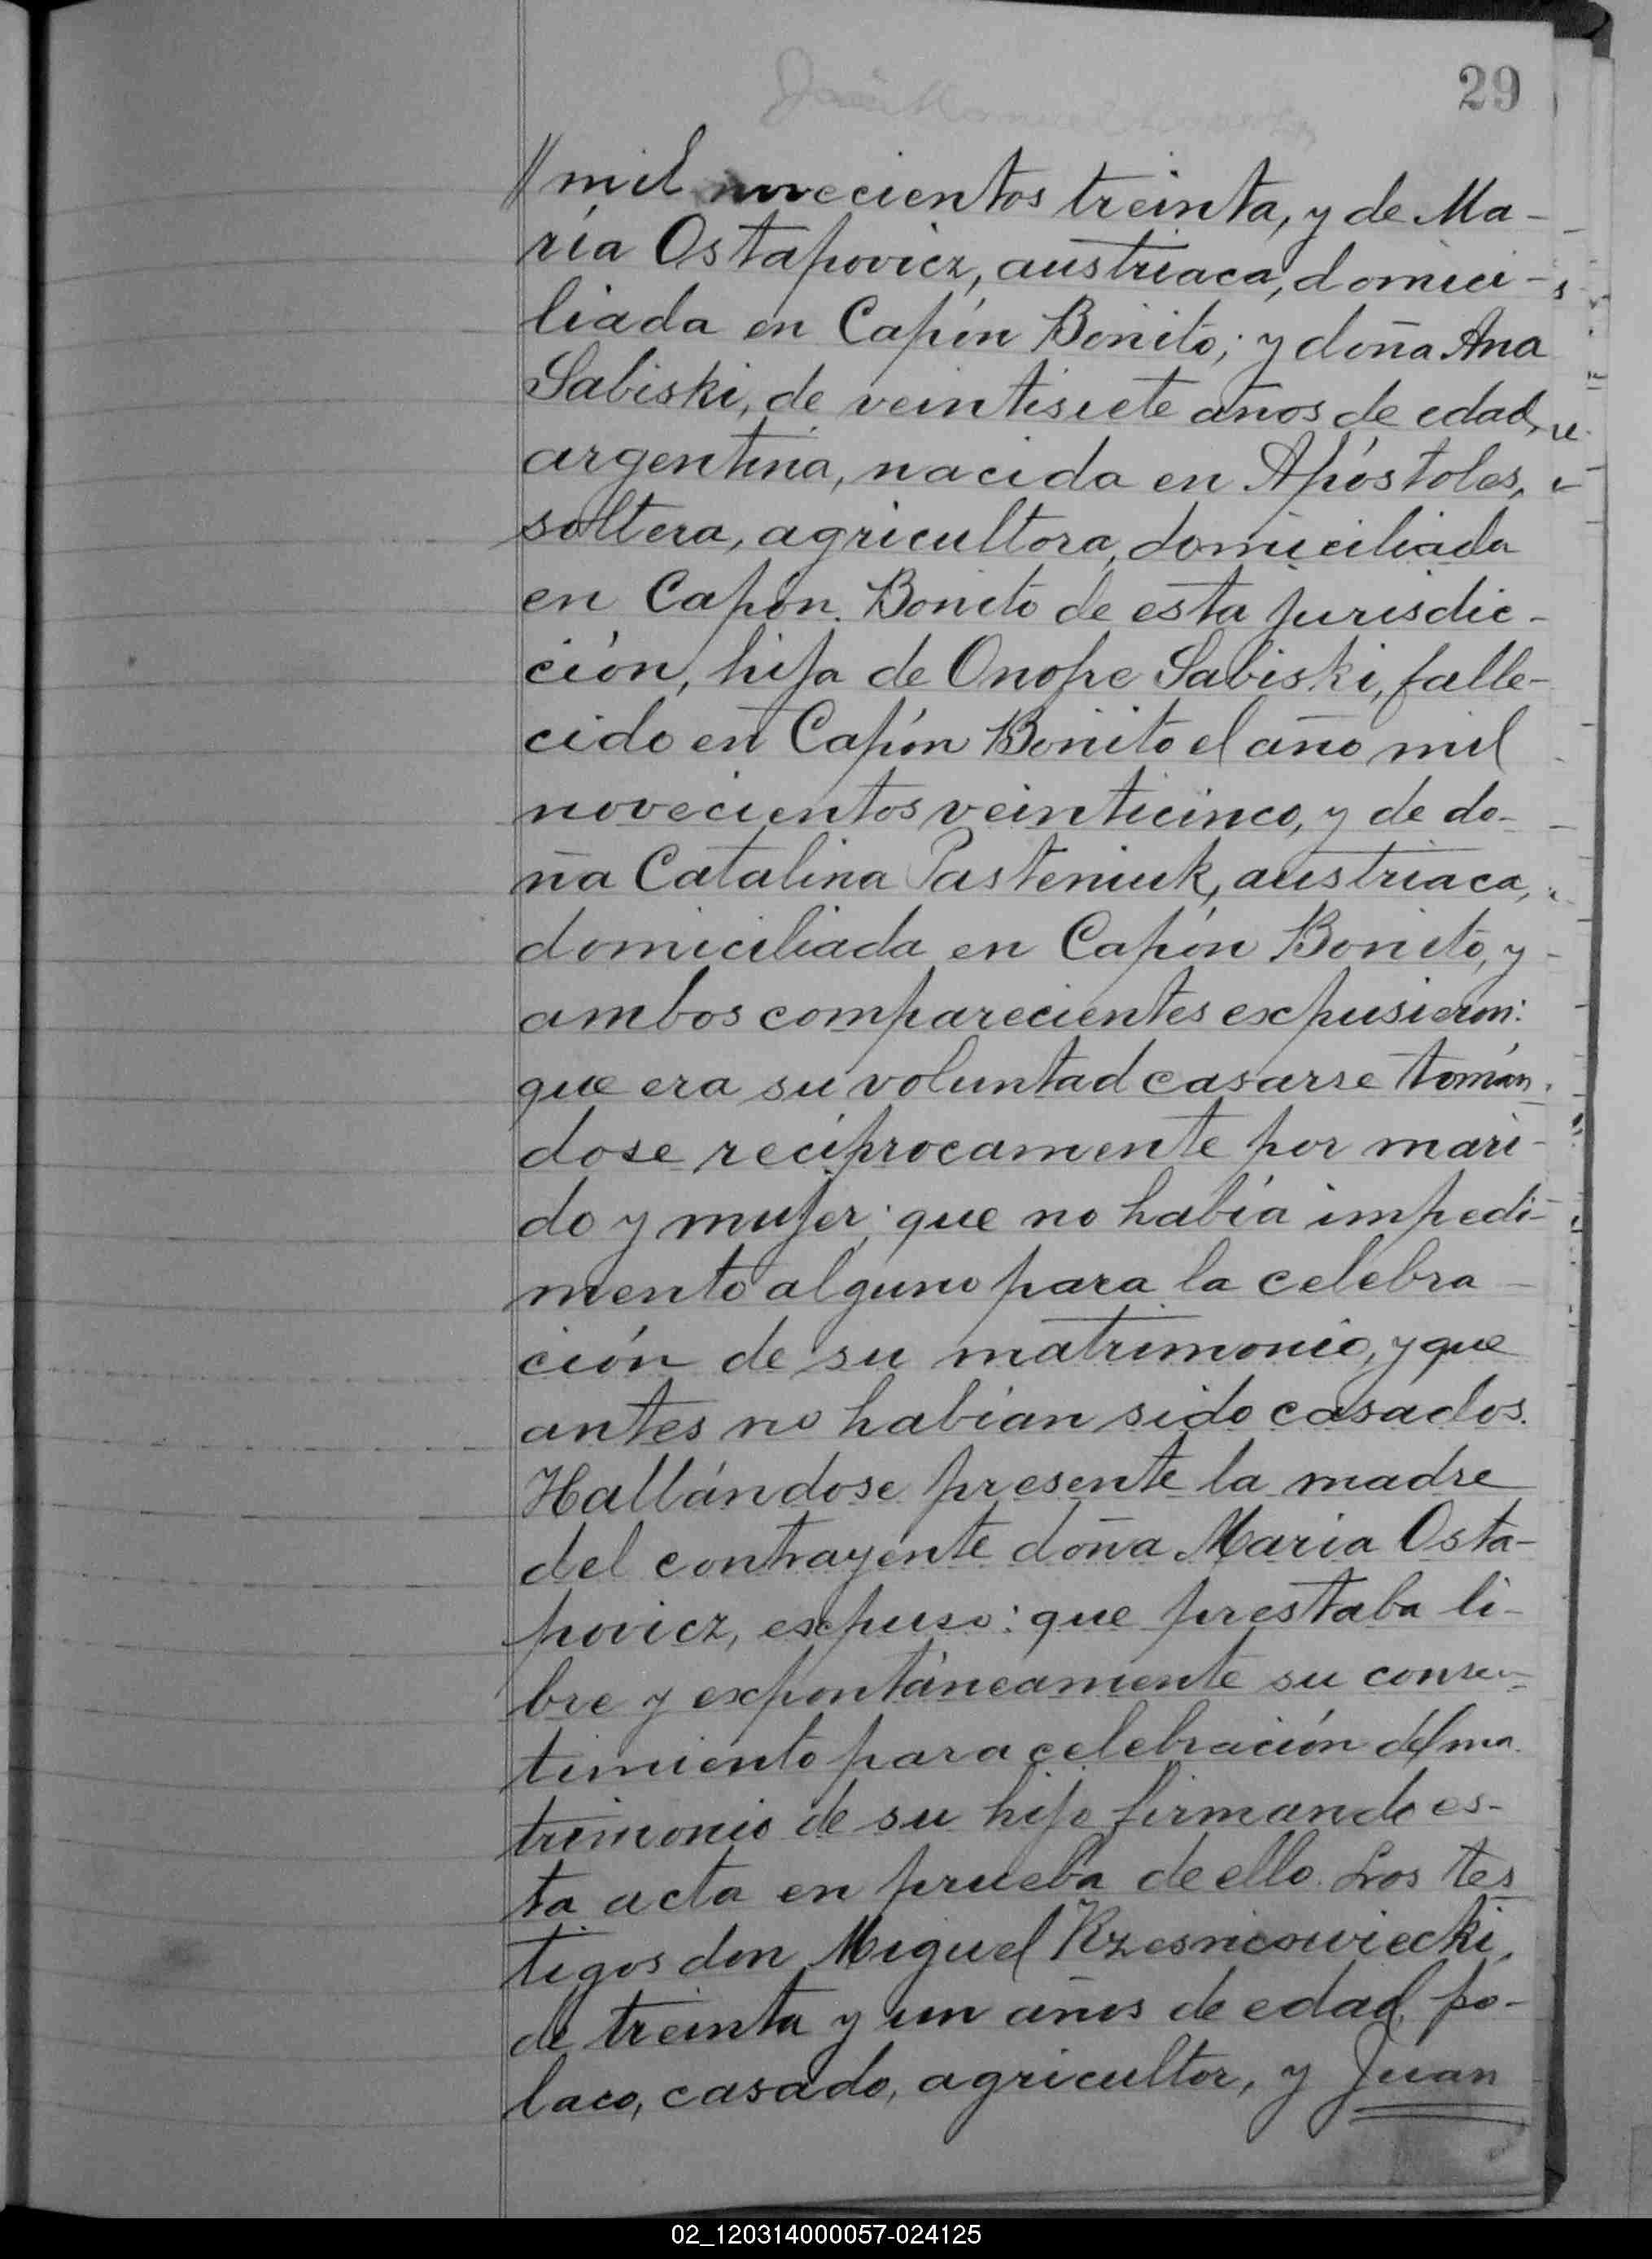 29
// mil novecientos treinta, y de Ma-
ría Ostapovicz, austriaca, domici-
liada en Capón Bonito; y doña Ana
Sabiski, de veintisiete años de edad,
argentina, nacida en Apóstoles,
soltera, agricultora, domiciliada
en Capón Bonito de esta jurisdic-
ción, hija de Onofre Sabiski, falle-
cido en Capón Bonito el año mil
novecientos veinticinco, y de do-
ña Catalina Pasteniuk, austriaca,
domiciliada en Capón Bonito, y
ambos comparecientes expusieron:
que era su voluntad casarse tomán-
dose recíprocamente por mari-
do y mujer; que no había impedi-
mento alguno para la celebra-
ción de su matrimonio, y que
antes no habían sido casados.
Hallándose presente la madre
del contrayente doña Maria Osta-
povicz, expuso: que prestaba li-
bre y expontáneamente su consen-
timiento para celebración del ma-
trimonio de su hijo firmando es-
ta acta en prueba de ello. Los tes
tigos don Miguel Krzesniowiecki,
de treinta y un años de edad, po-
laco, casado, agricultor, y Juan
02_120314000057-024125